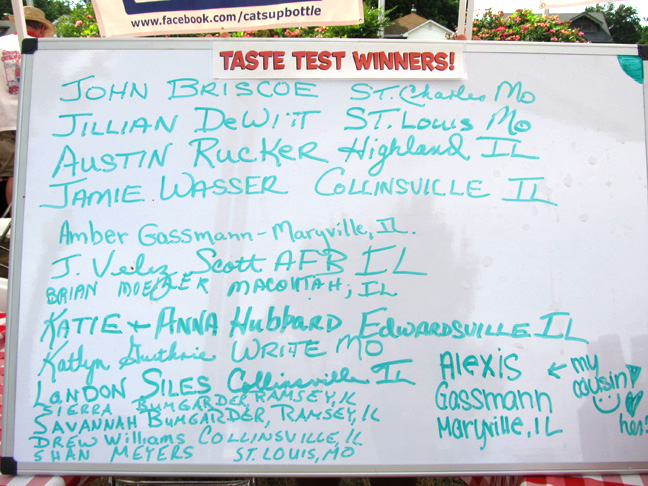 www.facebook.com/catsupbottle
TASTE TEST WINNERS!
JOHN BRISCOE ST. Charles MO
JILLIAN DeWitt ST. Louis Mo
AUSTIN RUCKER Highland IL
JAMIE WASSER COLLINSVILLE IL
Amber Gassmann - Maryville, IL.
J. Velez Scott AFB IL
BRIAN MACOUTAH, IL
KATIE + ANNA Hubbard EDWARDSVILLE IL
Katlyn Guthrie WRITE MO
LONDON SILES Collinsville IL
SIERRA BUMGARDER, RAMSEY, IL
SAVANNAH BUMGARDER, RAMSEY, IL
DREW Williams COLLINSVILLE, IL
SHAN MEYERS ST. LOUIS, MO
Alexis ← my
cousin
Gassmann
Maryville, IL
her!